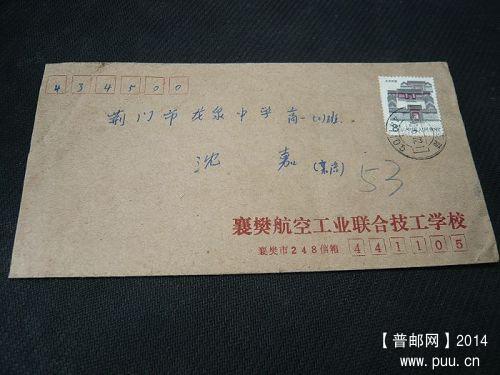 434500
荆门市龙泉中学高一(1)班
沈嘉
53
襄樊航空工业联合技工学校
襄樊市248信箱 441105
【普邮网】2014
www.puu.cn